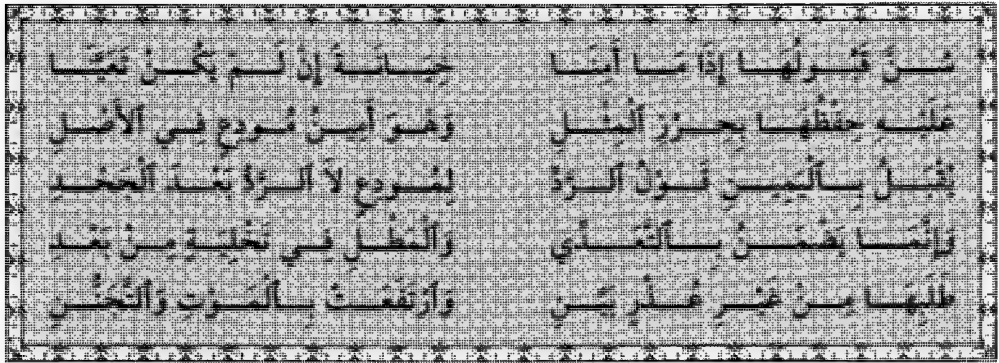 سُنَّ قَبُولُهَا إِذَا مَا أَمِنَا خِيَانَةً إِنْ لَمْ يَكُنْ تَعَيَّنَا
عَلَيْهِ حِفْظُهَا بِحِرْزِ ٱلْمِثْلِ وَهْوَ أَمِينُ مُودِعٍ فِي ٱلْأَصْلِ
يُقْبَلُ بِٱلْيَمِينِ قَوْلُ ٱلرَّدِّ لِمُودِعٍ لَا ٱلرَّدُّ بَعْدَ ٱلْجَحْدِ
وَإِنَّمَا يَضْمَنُ بِٱلتَّعَدِّي وَٱلْمَطْلِ فِي تَخْلِيَةٍ مِنْ بَعْدِ
طَلَبِهَا مِنْ غَيْرِ عُذْرٍ بَيِّنِ وَٱرْتَفَعَتْ بِٱلْمَوْتِ وَٱلتَّجَنُّنِ